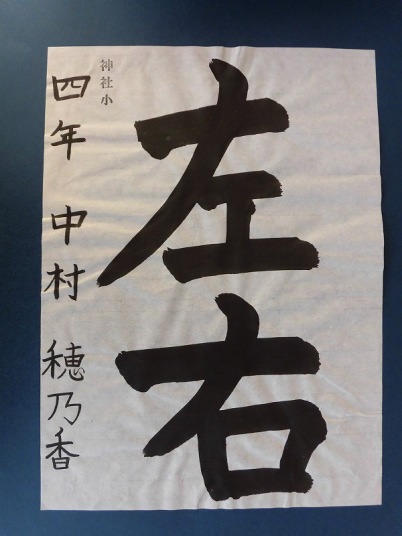 左右
神社小
四年 中村 穂乃香